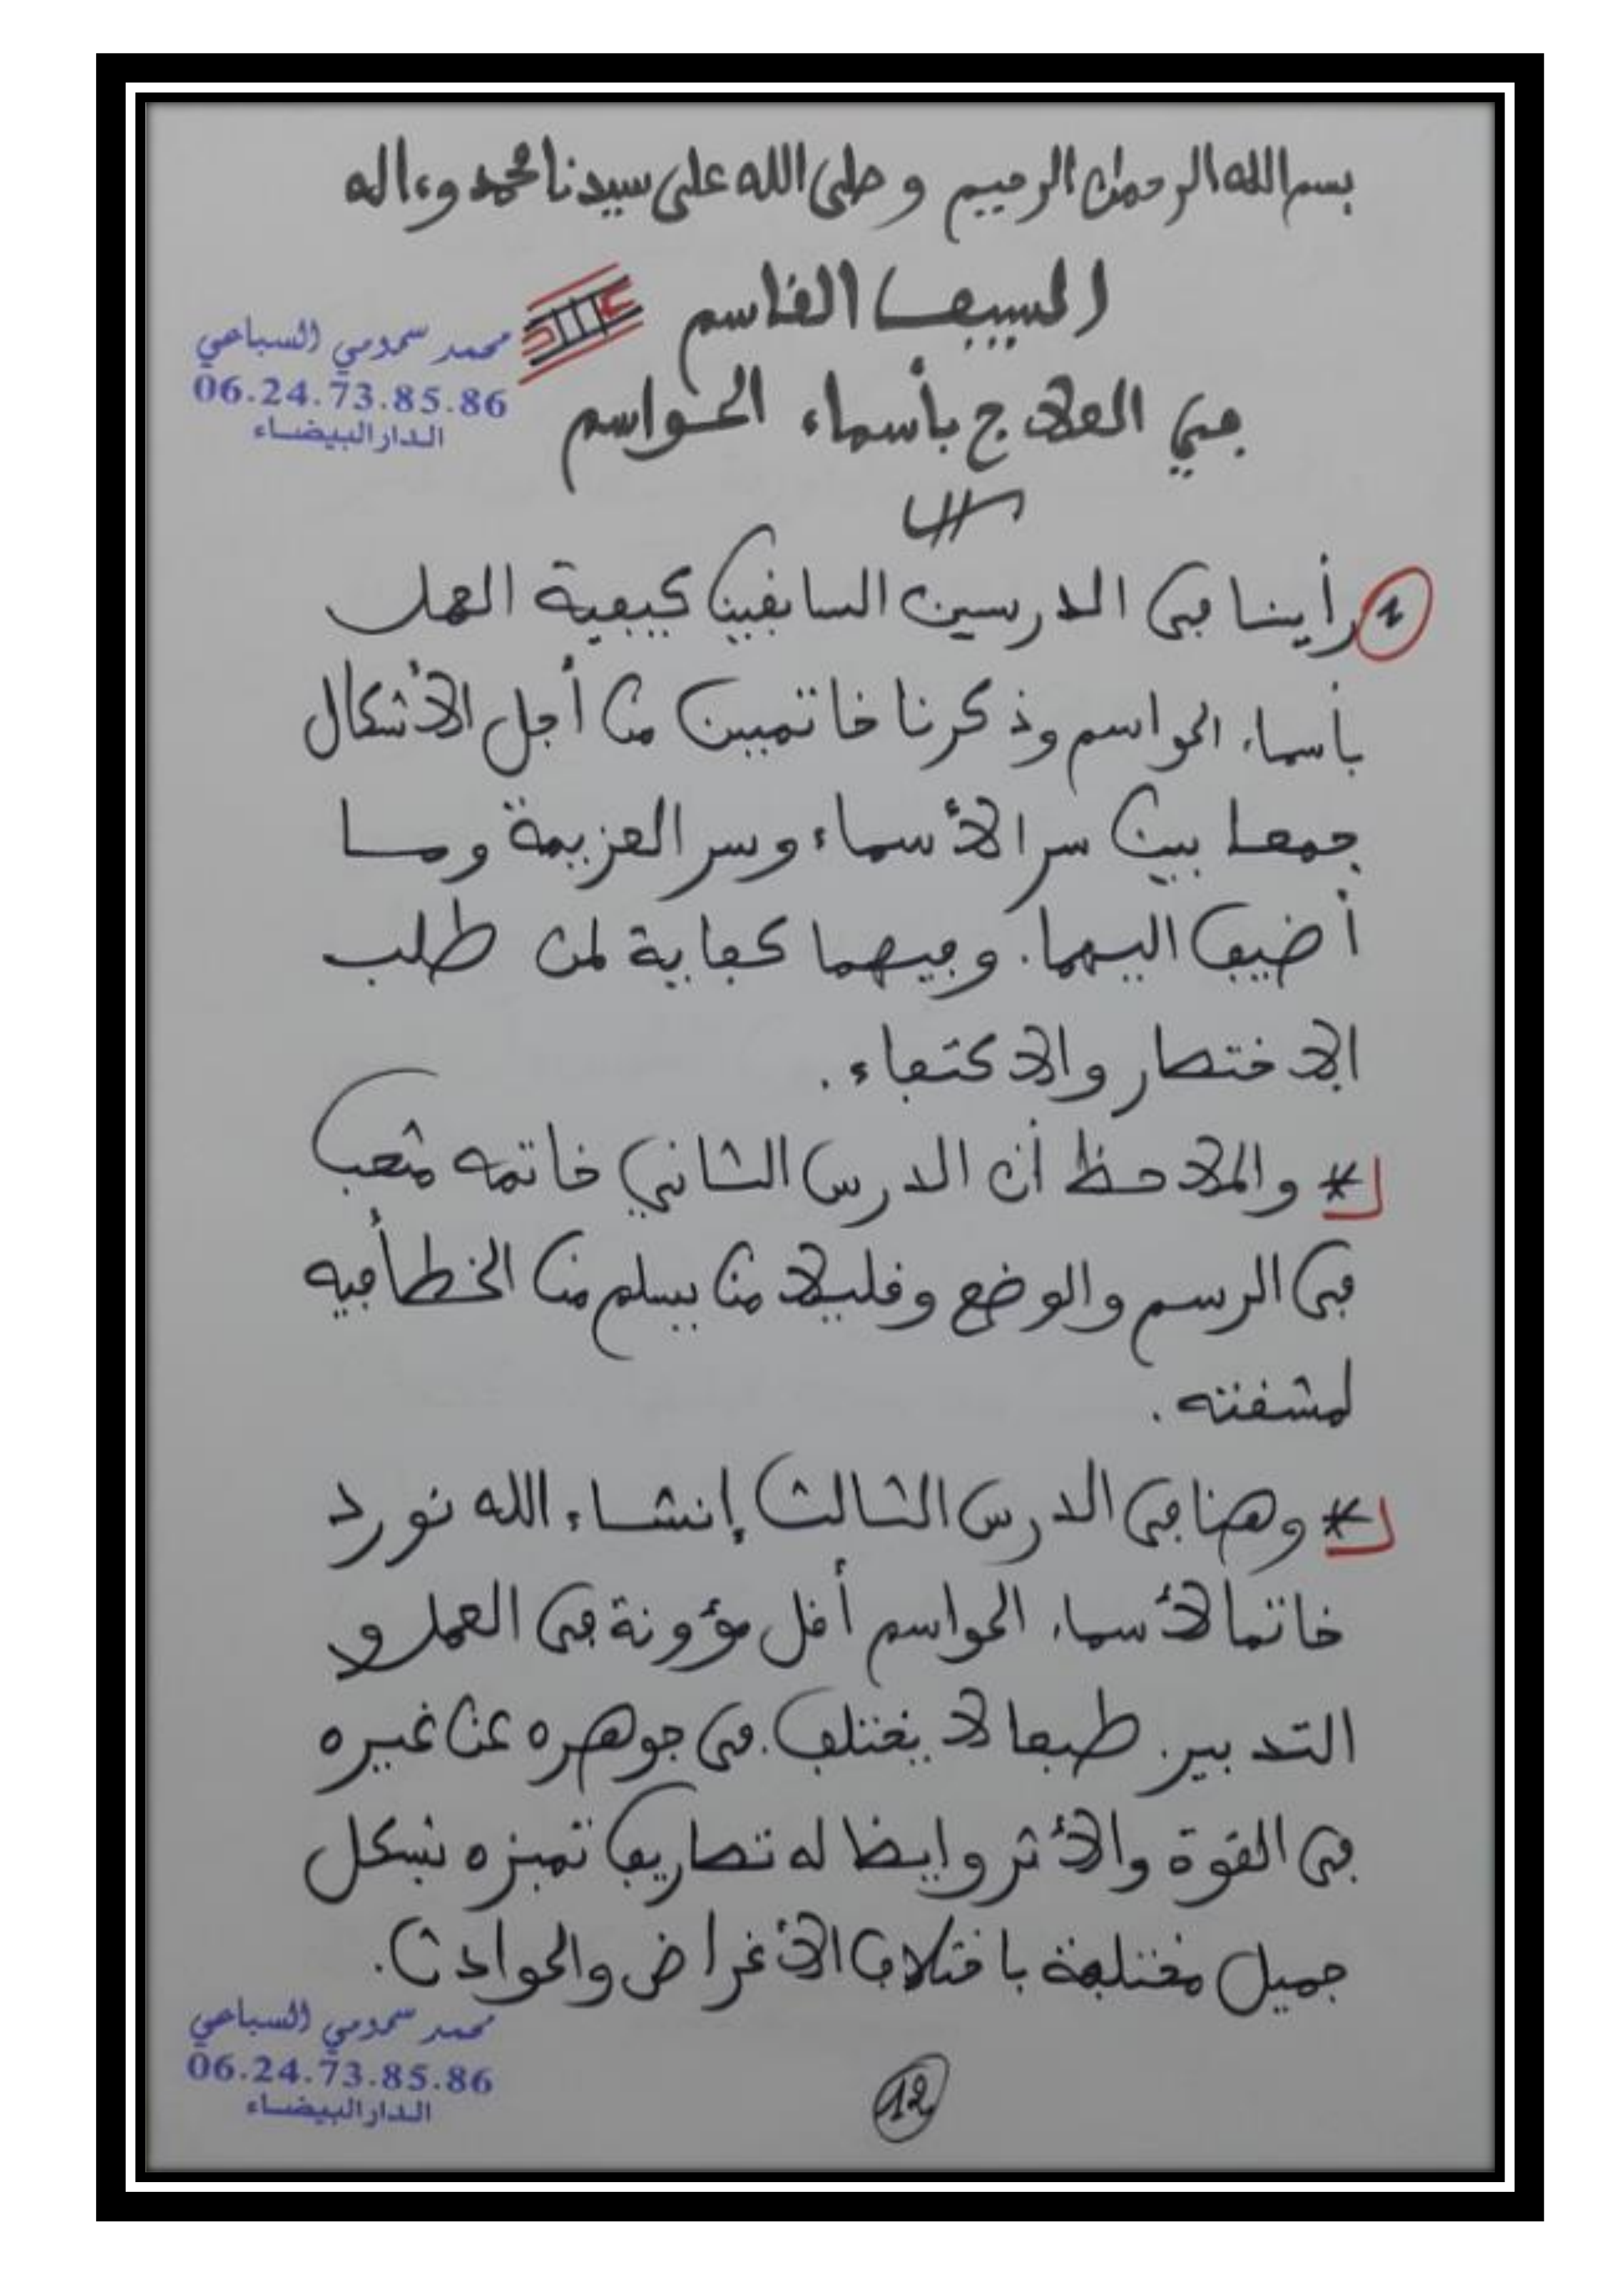 بسم الله الرحمان الرحيم وصلى الله على سيدنا محمد وءاله
السيف القاسم
محمد سمومي السباعي
06.24.73.85.86
الدار البيضاء
في العلاج بأسماء الحواسم
رأينا في الدرسين السابقين كيفية العمل
بأسماء الحواسم وذكرنا خاتمين من أجل الأشكال
جمعا بين سر الأسماء وسر العزيمة وما
أضيف اليهما. وفيهما كفاية لمن طلب
الاختصار والاكتفاء.
* والملاحظ أن الدرس الثاني خاتمه متعب
في الرسم والوضع وقليلا من يسلم من الخطأ فيه
لمشقته.
* وهنا في الدرس الثالث إنشاء الله نورد
خاتما لأسماء الحواسم أقل مؤونة في العمل و
التدبير. طبعا لا يختلف في جوهره عن غيره
في القوة والأثر وايضا له تصاريف تميزه بشكل
جميل مختلفة باختلاف الأغراض والحوادث.
محمد سمومي السباعي
06.24.73.85.86
الدار البيضاء
12